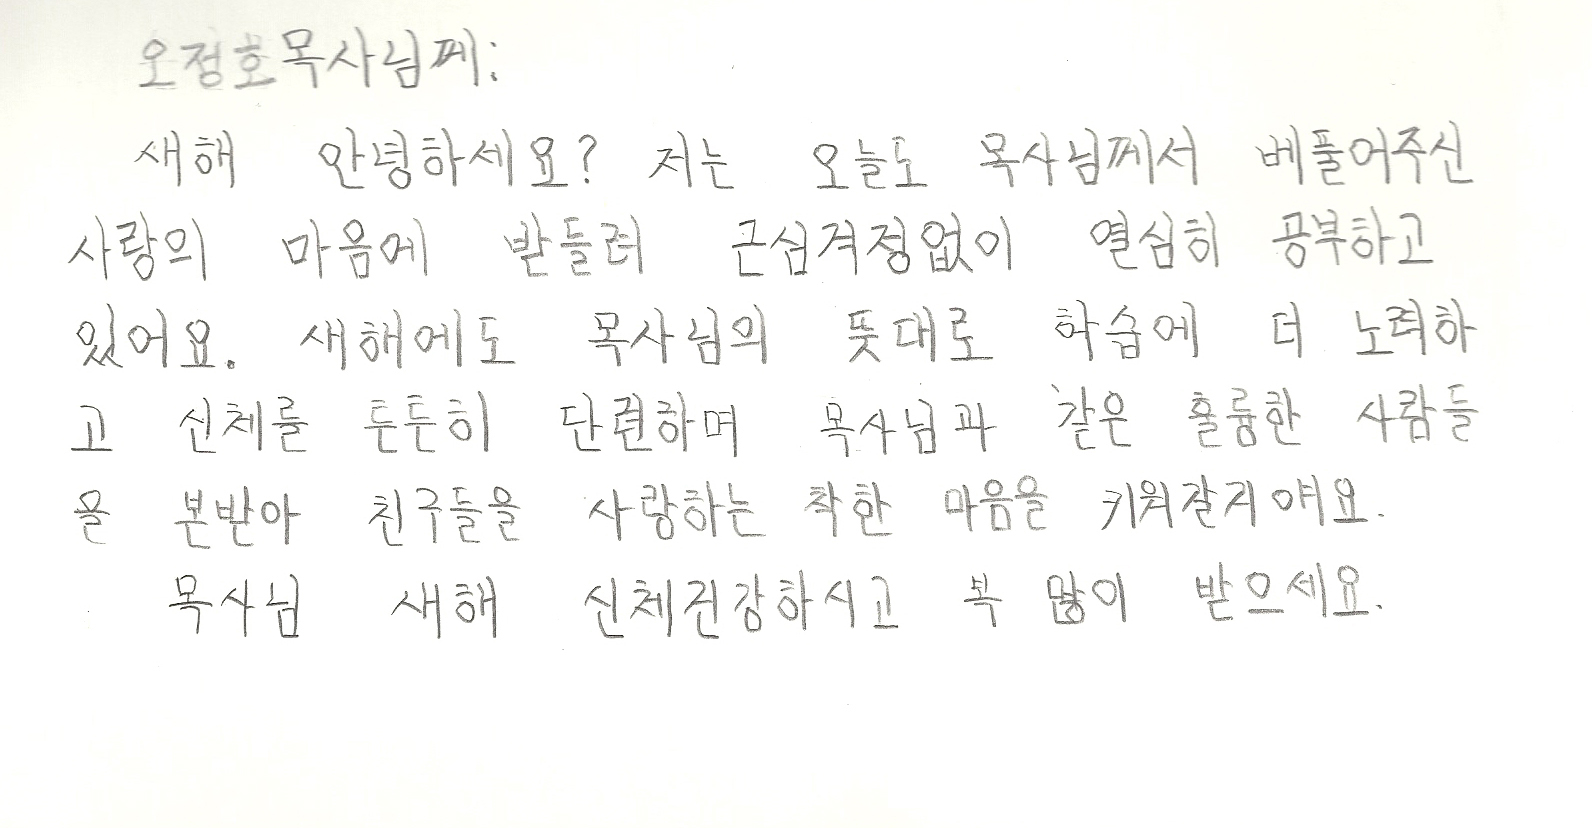 오정호목사님께:
새해 안녕하세요? 저는 오늘도 목사님께서 베풀어주신
사랑의 마음에 받들려 근심걱정없이 열심히 공부하고
있어요. 새해에도 목사님의 뜻대로 학습에 더 노력하
고 신체를 튼튼히 단련하며 목사님과 같은 훌륭한 사람들
을 본받아 친구들을 사랑하는 착한 마음을 키워갈거얘요.
목사님 새해 신체건강하시고 복 많이 받으세요.